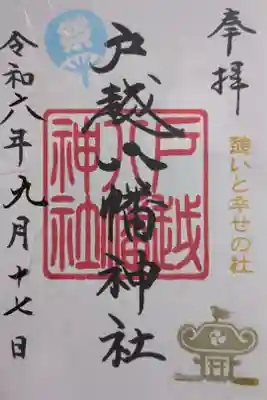 奉拝
憩いと幸せの社
戸越八幡神社
戸越
八幡
神社
祭
令和六年九月十七日